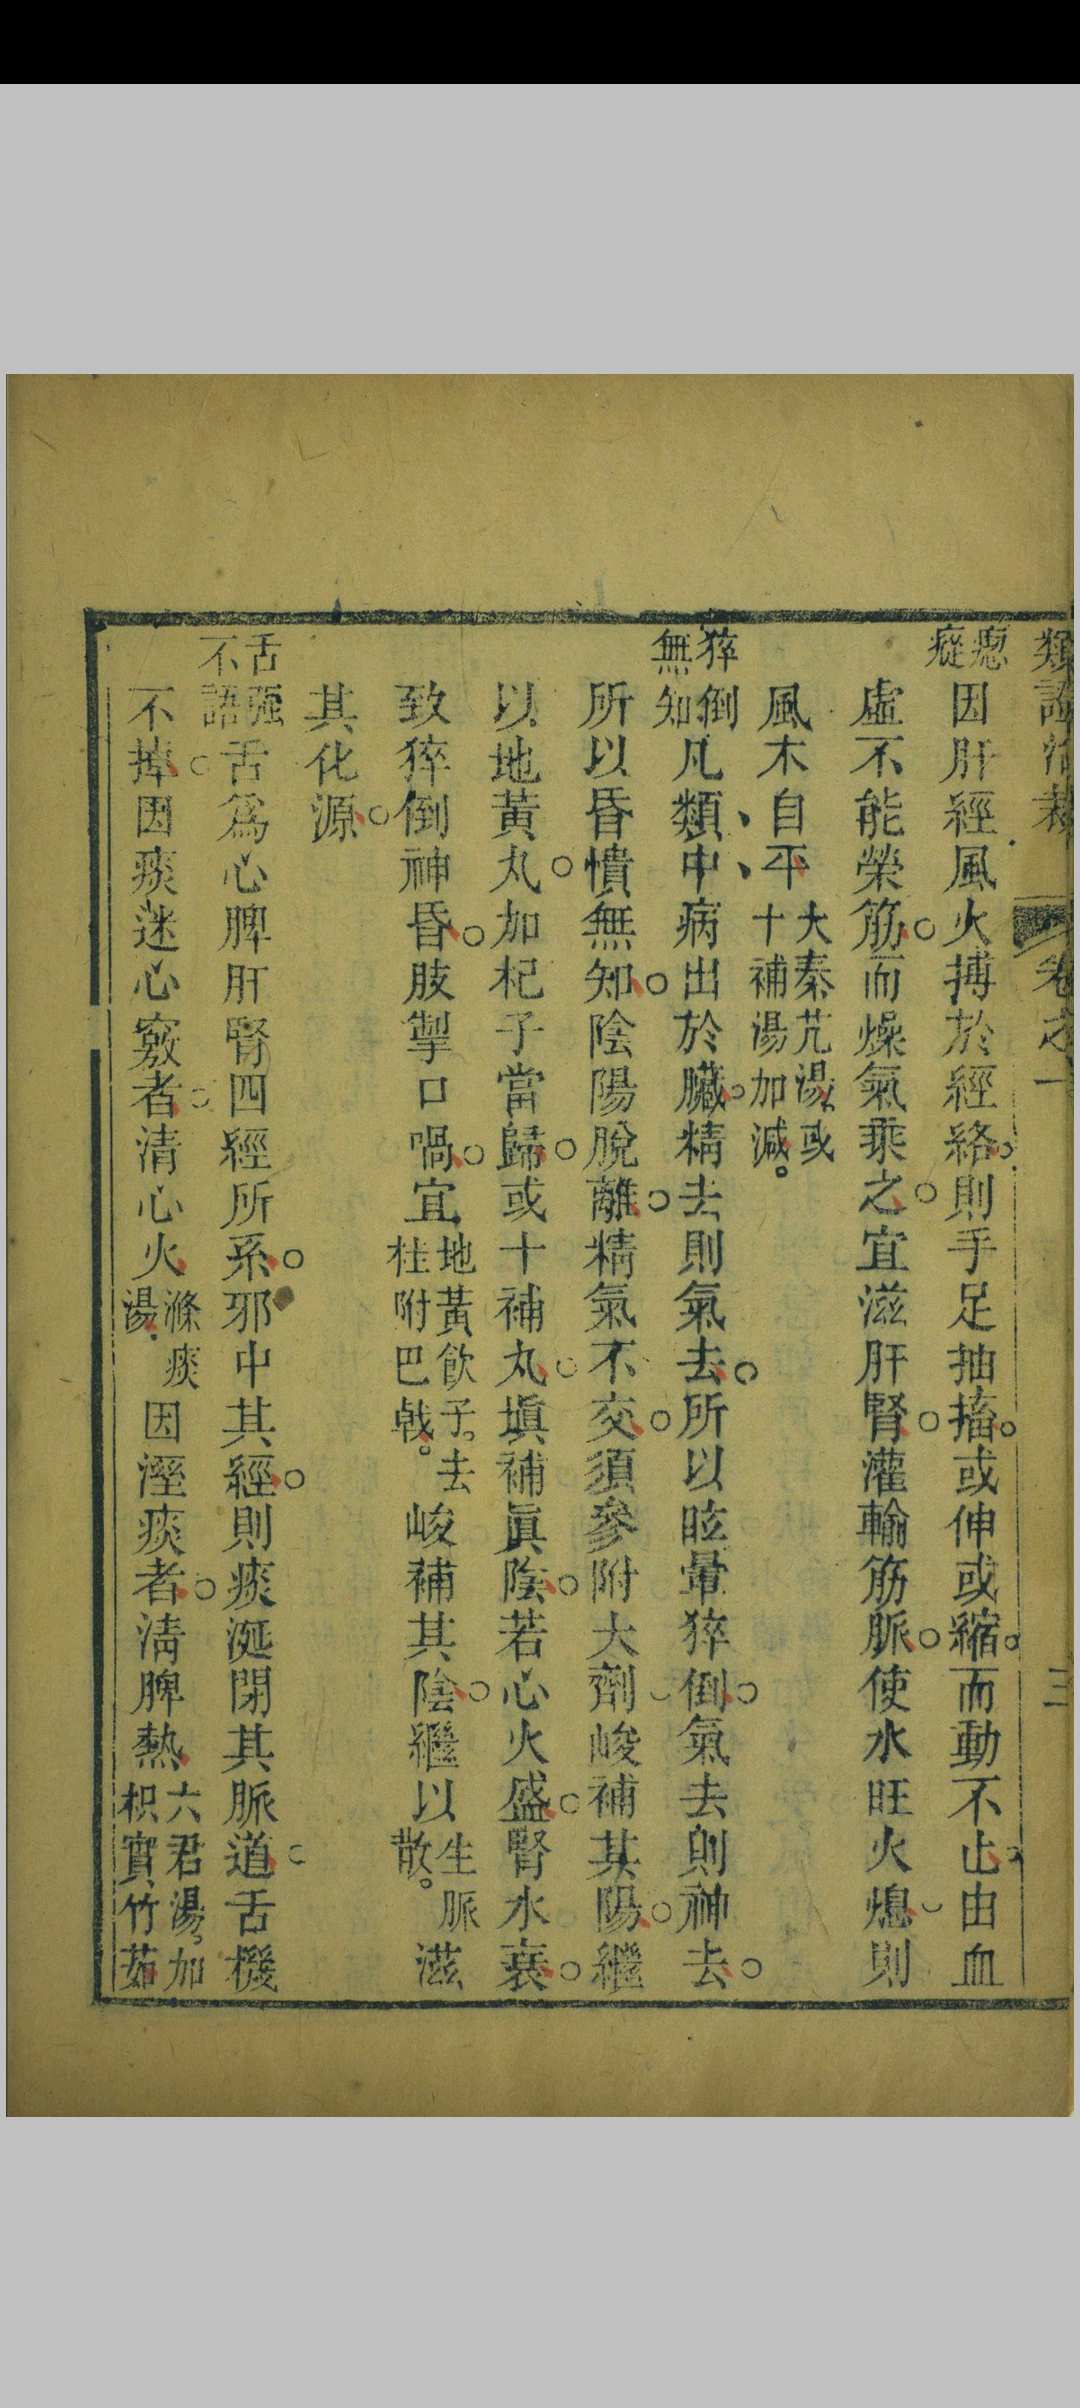 類證治裁 卷之一 三
瘛瘲
因肝經風火搏於經絡則手足抽搐或伸或縮而動不止由血
虛不能榮筋而燥氣乘之宜滋肝腎灌輸筋脈使水旺火熄則
風木自平大秦艽湯或十補湯加減
猝倒無知
凡類中病出於臟精去則氣去所以眩暈猝倒氣去則神去
所以昏憒無知陰陽脫離精氣不交須參附大劑峻補其陽繼
以地黃丸加杞子當歸或十補丸塡補眞陰若心火盛腎水衰
致猝倒神昏肢掣口喎宜地黃飲子去桂附巴戟峻補其陰繼以生脈散滋
其化源
舌強不語
舌爲心脾肝腎四經所系邪中其經則痰涎閉其脈道舌機
不掉因痰迷心竅者清心火滌痰湯因溼痰者清脾熱六君湯加枳實竹茹